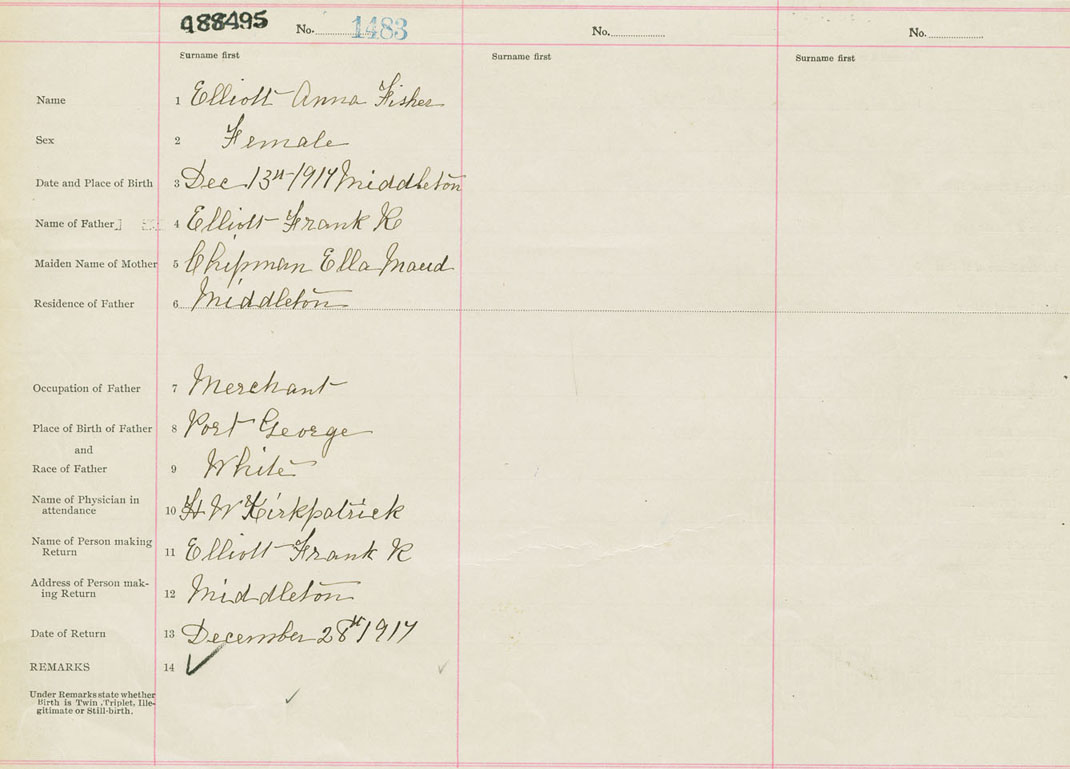 988495 No. 1483 No. No.
Surname first Surname first Surname first
Name 1 Elliott Anna Fisher
Sex 2 Female
Date and Place of Birth 3 Dec 13th 1917 Middleton
Name of Father 4 Elliott Frank R
Maiden Name of Mother 5 Chipman Ella Maud
Residence of Father 6 Middleton
Occupation of Father 7 Merchant
Place of Birth of Father 8 Port George
and
Race of Father 9 White
Name of Physician in
attendance 10 H W Kirkpatrick
Name of Person making
Return 11 Elliott Frank R
Address of Person mak-
ing Return 12 Middleton
Date of Return 13 December 28th 1917
REMARKS 14
Under Remarks state whether
Birth is Twin, Triplet, Ille-
gitimate or Still-birth.